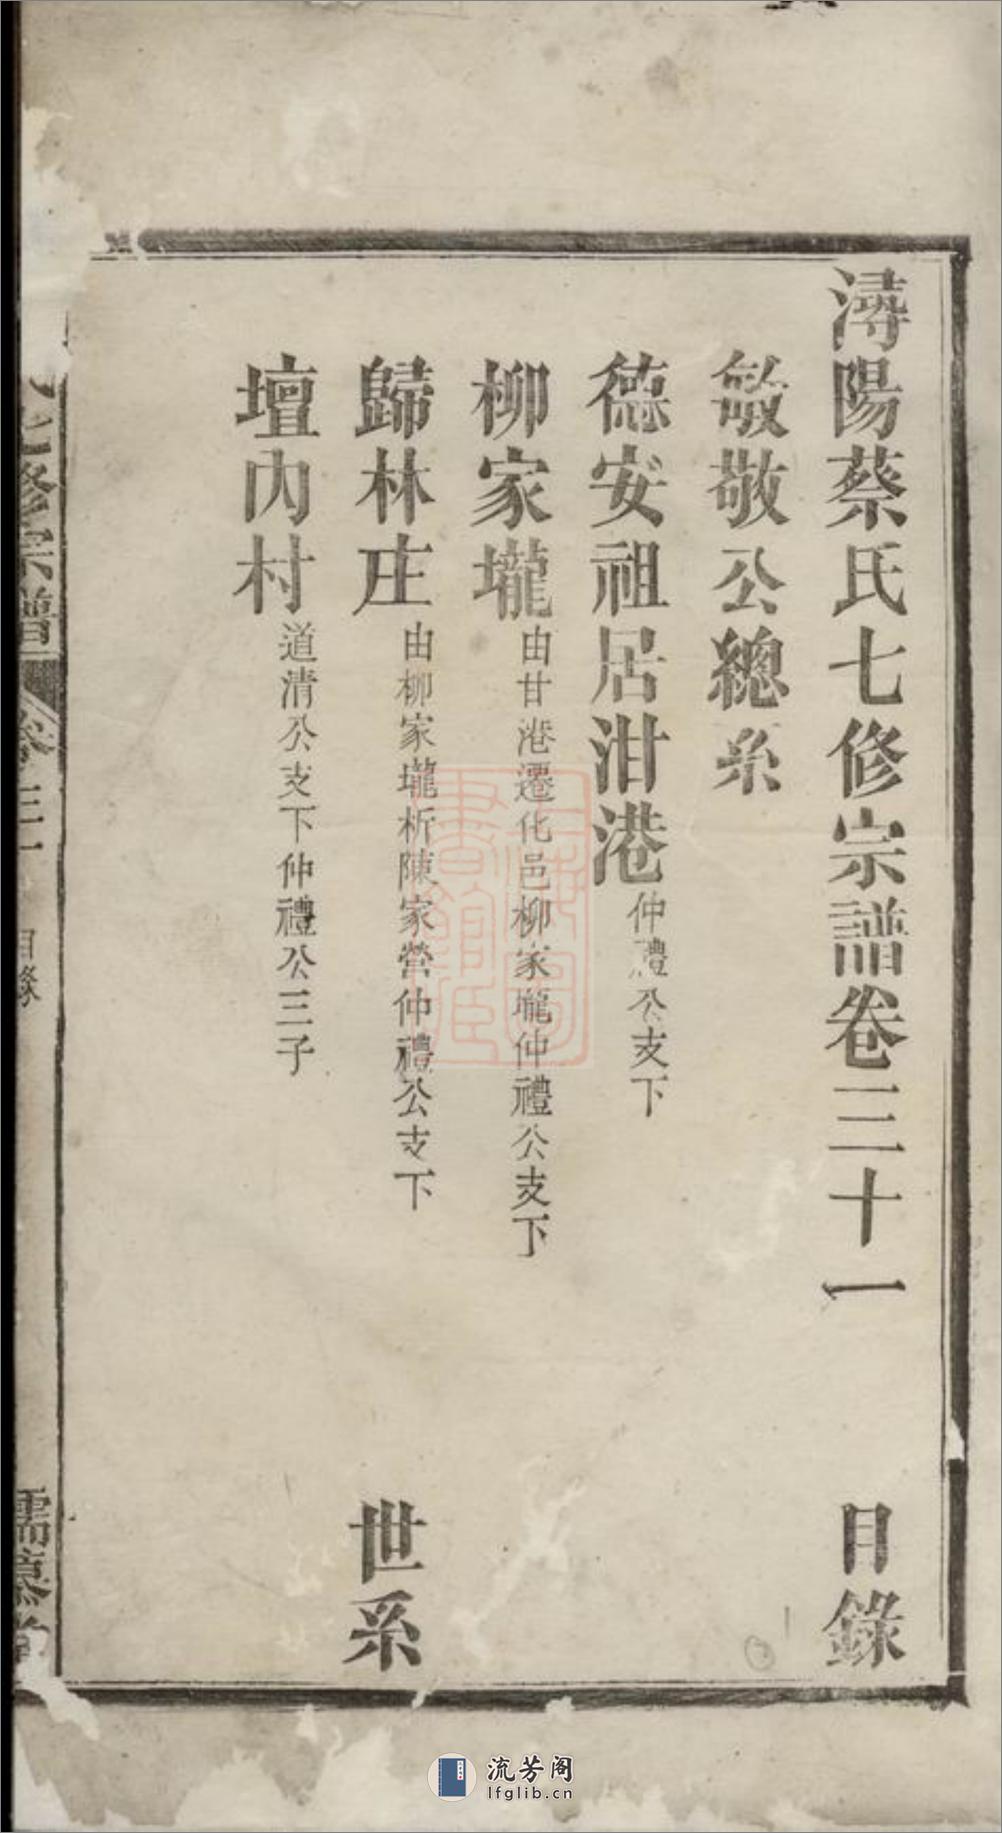 潯陽蔡氏七修宗譜卷三十一 目錄
敏敬公總系
德安祖居泔港仲禮公支下
柳家壠由甘港遷化邑柳家壠仲禮公支下
歸林庄由柳家壠析陳家營仲禮公支下 世系
壇內村道清公支下仲禮公三子
七修宗譜 卷三十一 目錄
流芳阁
lfglib.cn